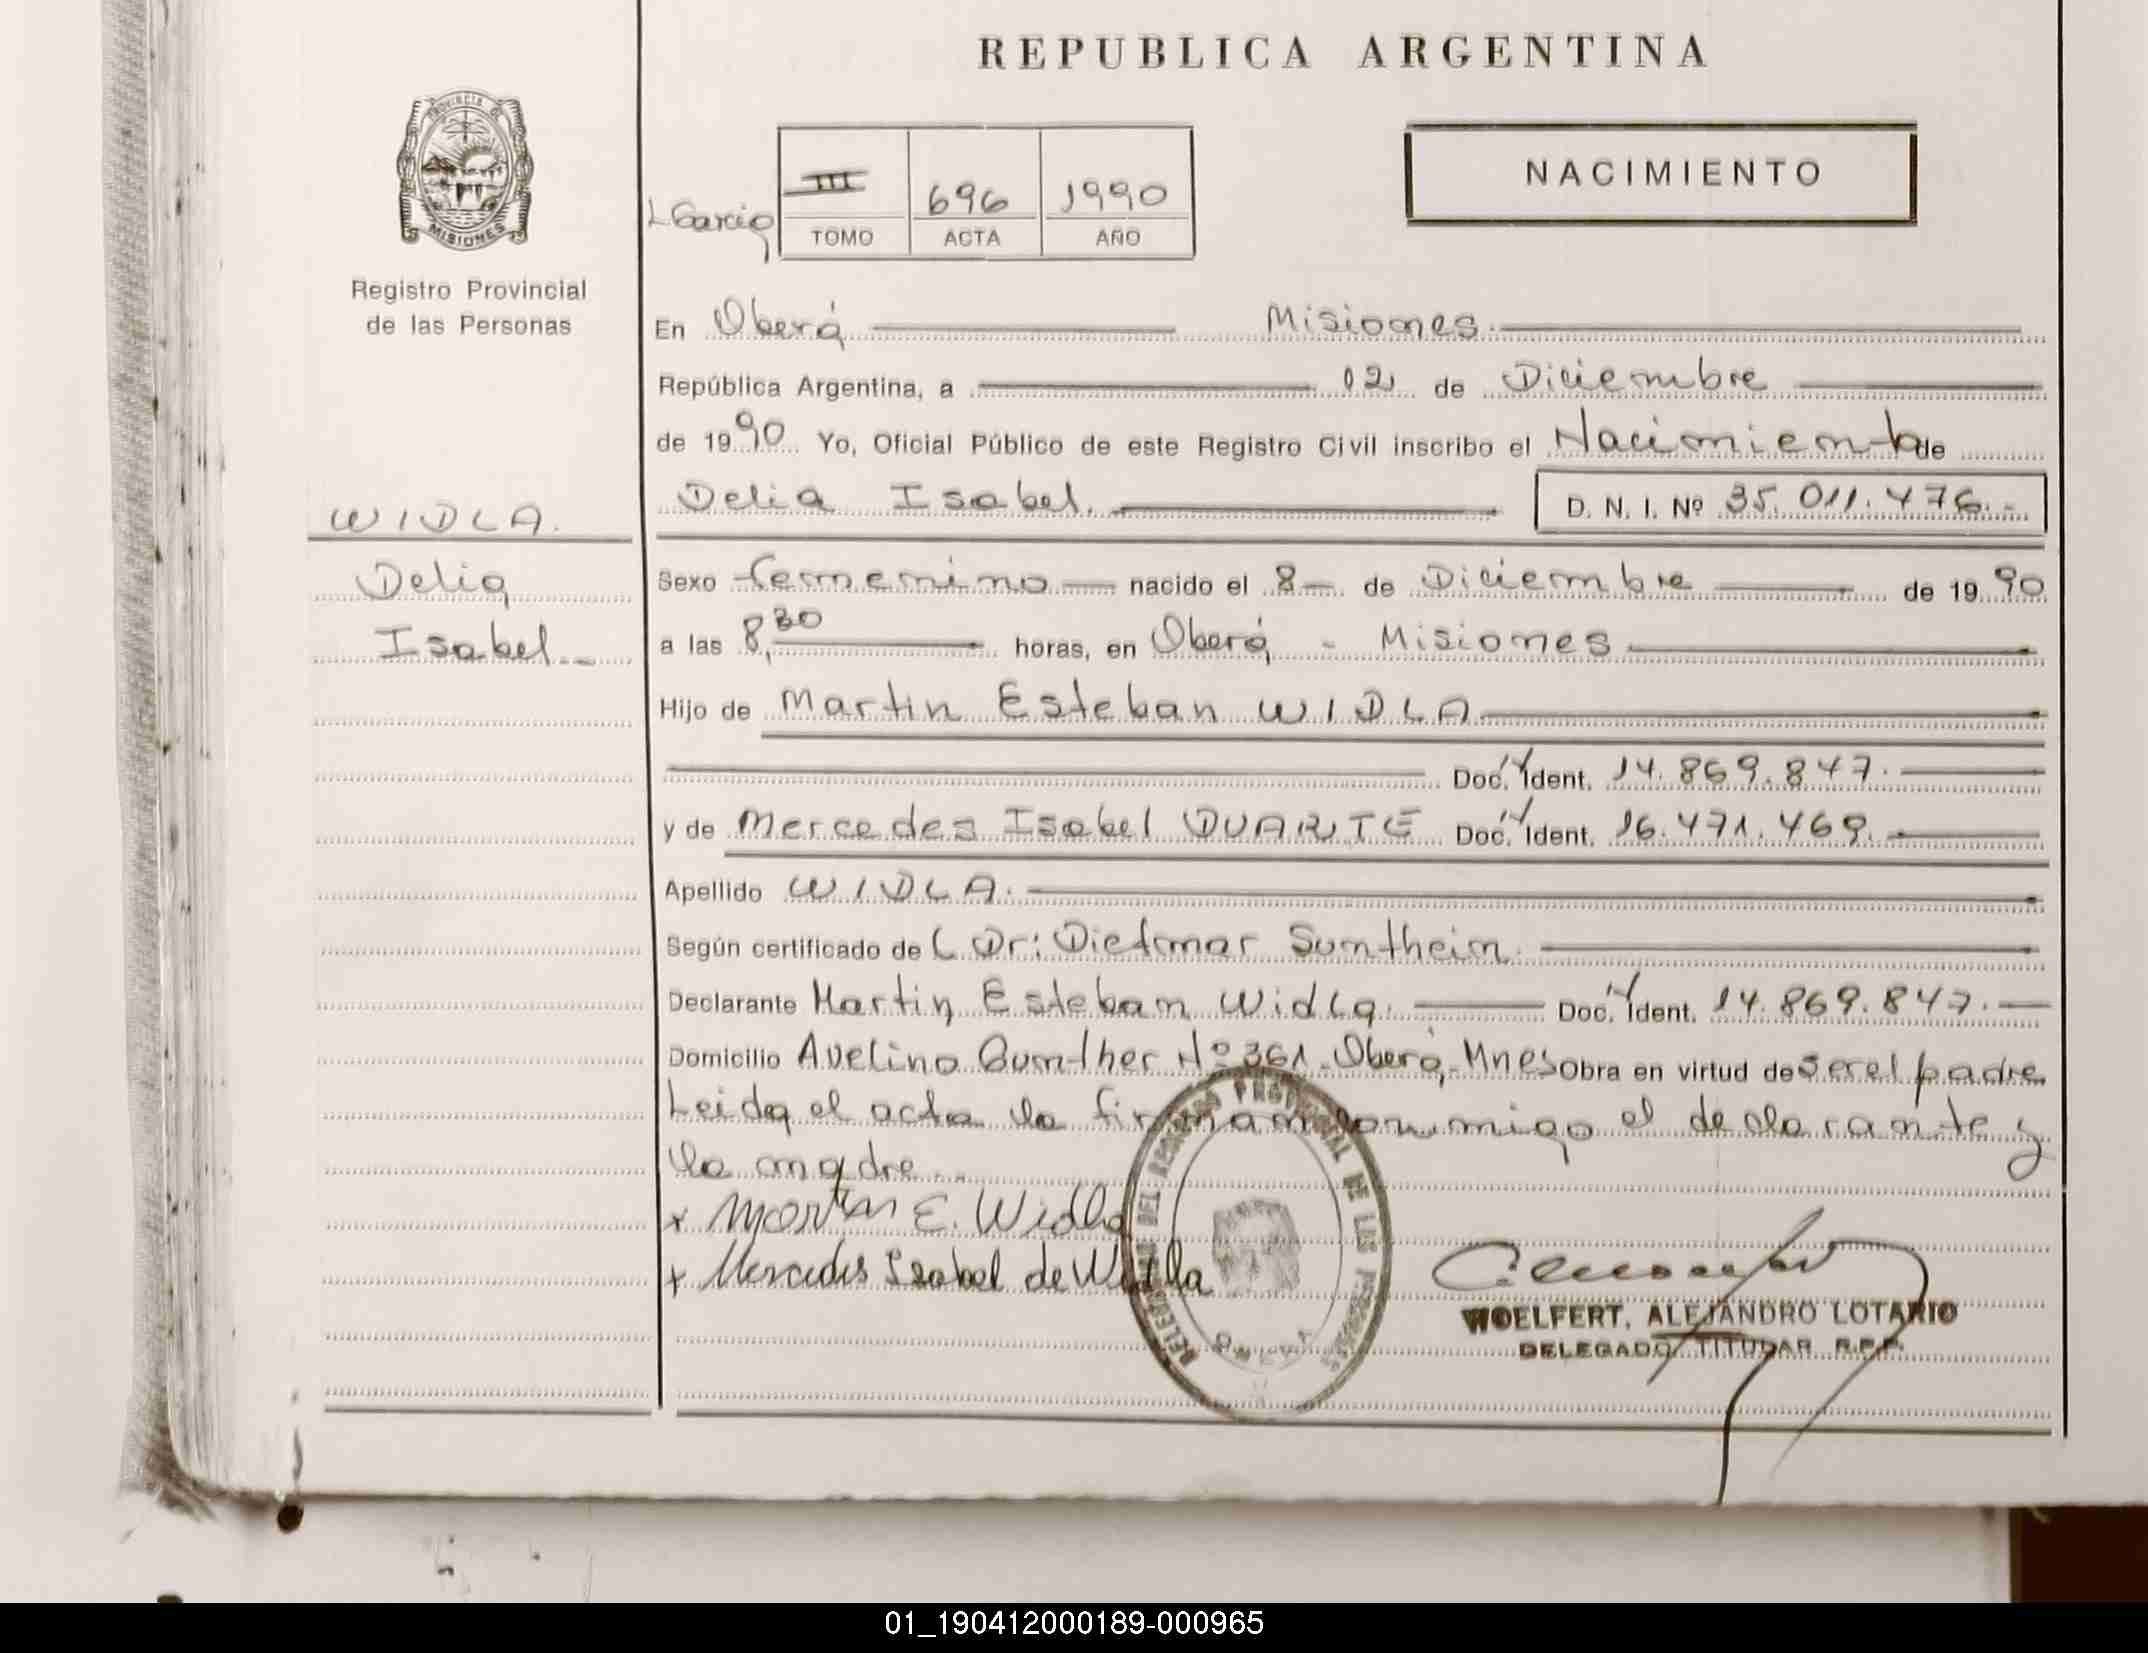 REPUBLICA ARGENTINA
PROVINCIA DE
MISIONES
Registro Provincial
de las Personas
NACIMIENTO
L Garcia
III 696 1990
TOMO ACTA AÑO
En Oberá Misiones.
República Argentina, a 12 de Diciembre
de 1990 Yo, Oficial Público de este Registro Civil inscribo el Nacimiento de
Delia Isabel. D. N. I. Nº 35.011.476.-
WIDLA.
Delia
Isabel.-
Sexo femenino nacido el 8 de Diciembre de 1990
a las 8,30 horas, en Oberá - Misiones
Hijo de Martin Esteban WIDLA
Doc. Ident. 14.869.847.
y de Mercedes Isabel DUARTE Doc. Ident. 16.471.469.
Apellido WIDLA.
Según certificado de L Dr: Dietmar Suntheim.
Declarante Martin Esteban Widla. Doc. Ident. 14.869.847.
Domicilio Avelino Gunther Nº 361 - Oberá, Mnes Obra en virtud de ser el padre
Leida el acta la firman conmigo el declarante y
la madre.
x Martin E. Widla
x Mercedes Isabel de Widla
DELEGACION DEL REGISTRO PROVINCIAL DE LAS PERSONAS
OBERA
WOELFERT, ALEJANDRO LOTARIO
DELEGADO TITULAR R.P.P.
01_190412000189-000965